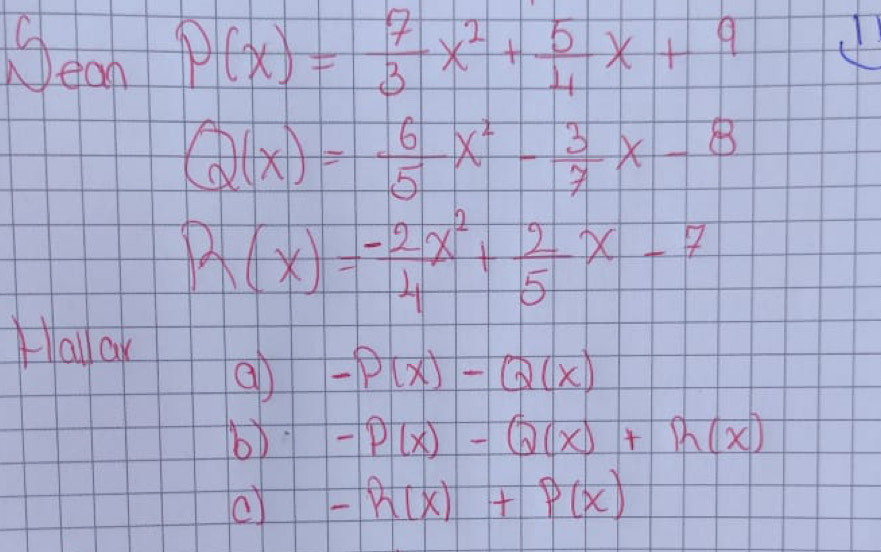 Sean P(x) = 7/3 x² + 5/4 x + 9
Q(x) = 6/5 x² - 3/7 x - 8
R(x) = -2/4 x² + 2/5 x - 7
Hallar
a) -P(x) - Q(x)
b) -P(x) - Q(x) + R(x)
c) -R(x) + P(x)